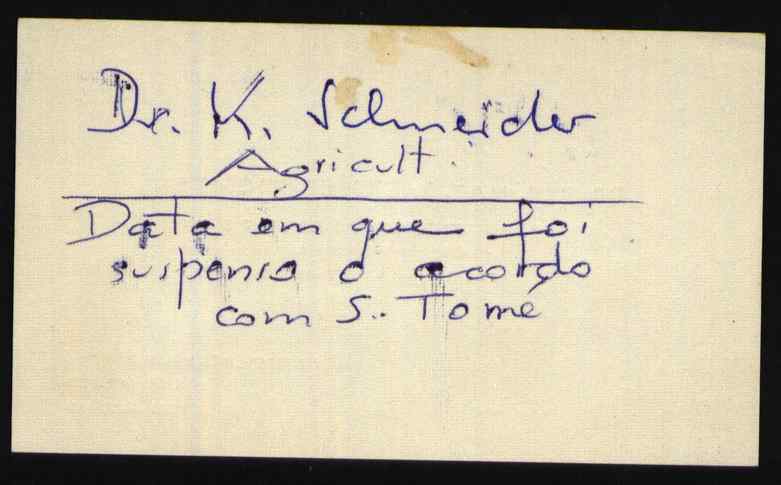 Dr. K. Schneider
Agricult.
Data em que foi
suspenso o acordo
com S. Tomé